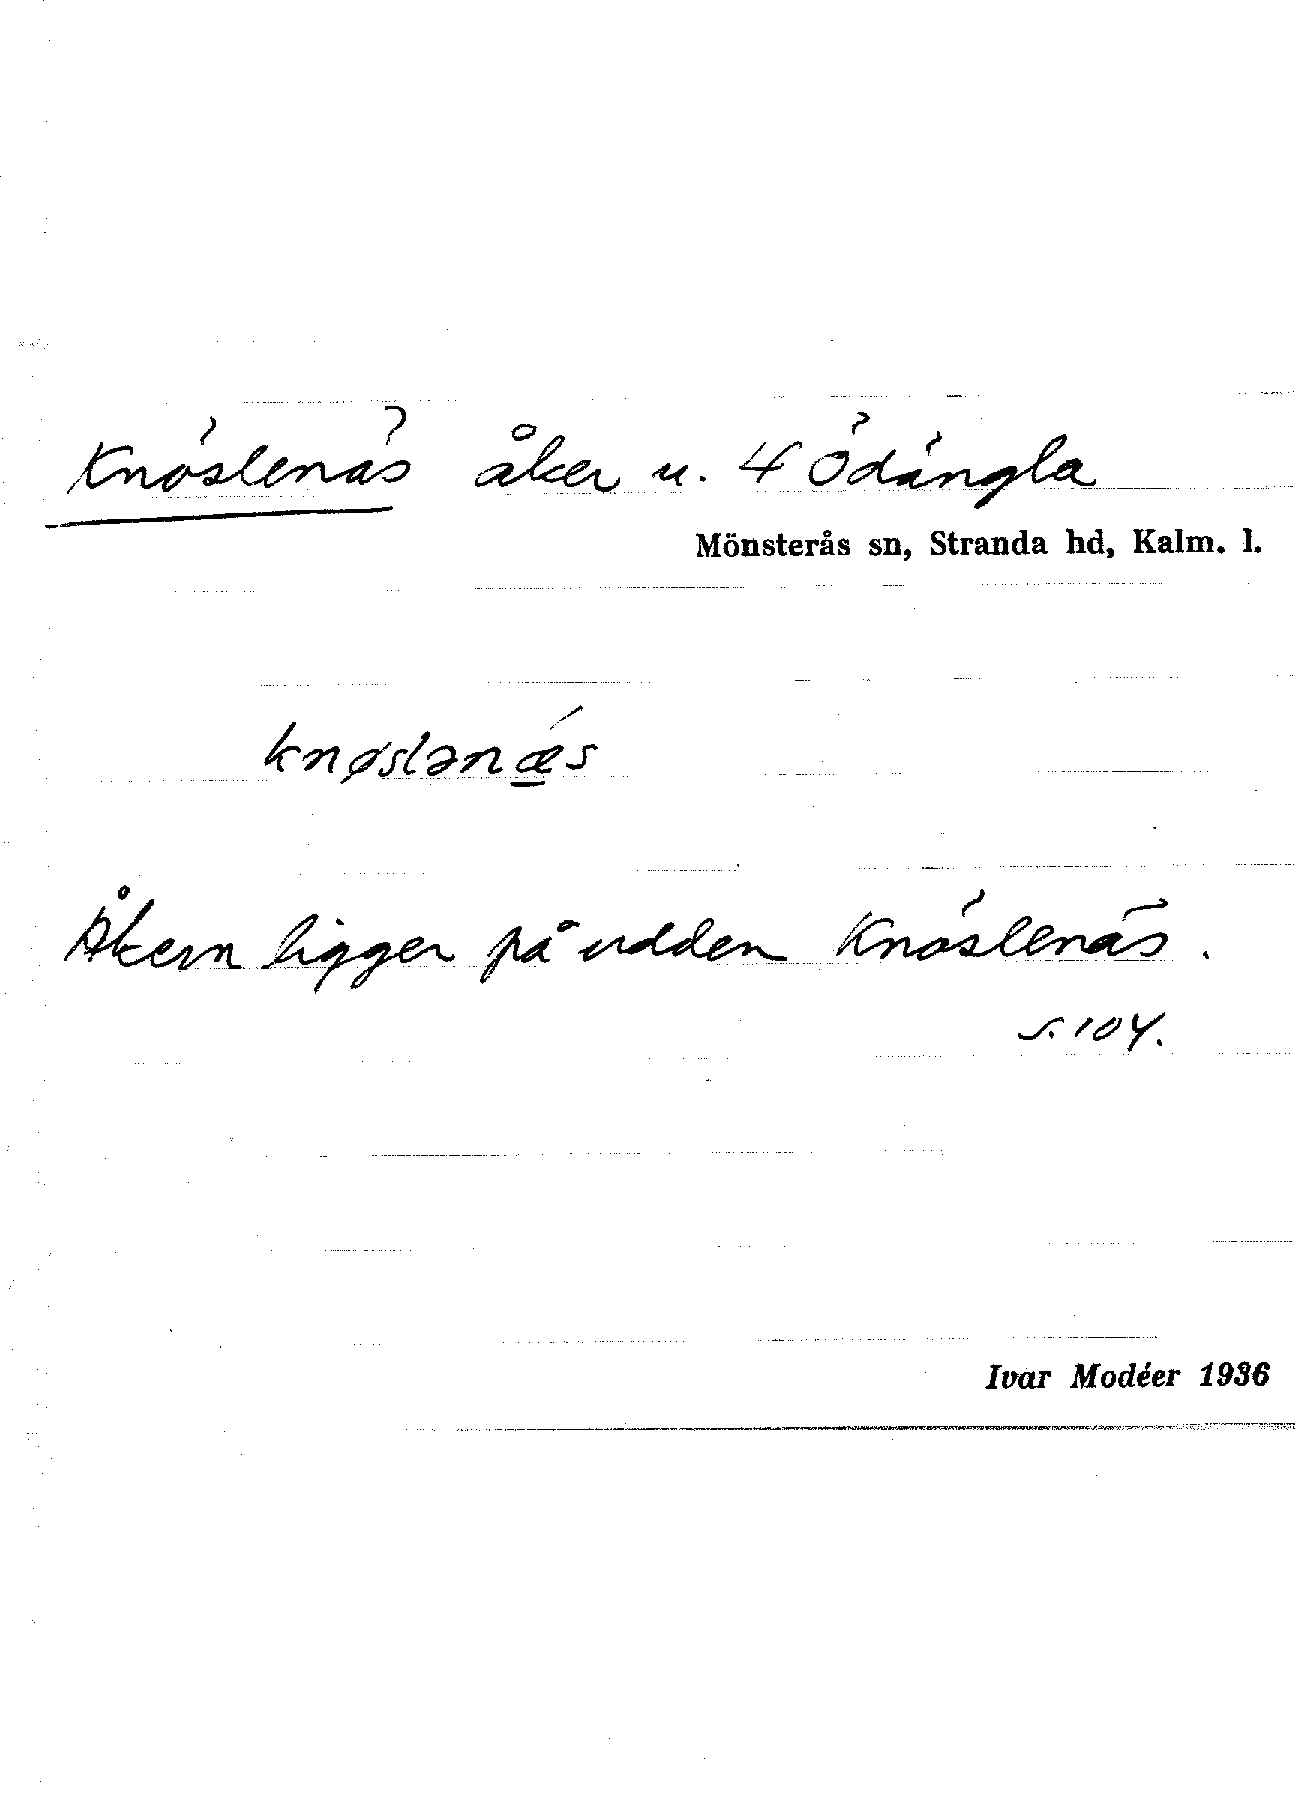 Knöslenäs åker u. 4 Ödängla
Mönsterås sn, Stranda hd, Kalm. l.
knøslənǽs
Åkern ligger på udden Knöslenäs.
s. 104.
Ivar Modéer 1936